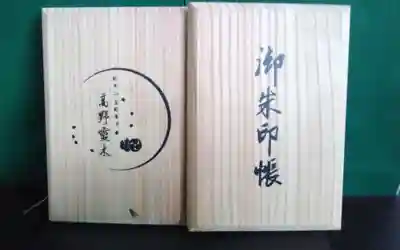 高野霊木
御朱印帳